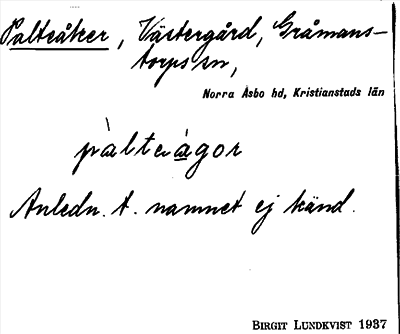 Palteåker, Västergård, Gråmans-
torps sn,
Norra Åsbo hd, Kristianstads län
pàlteågor
Anledn. t. namnet ej känd.
BIRGIT LUNDKVIST 1937